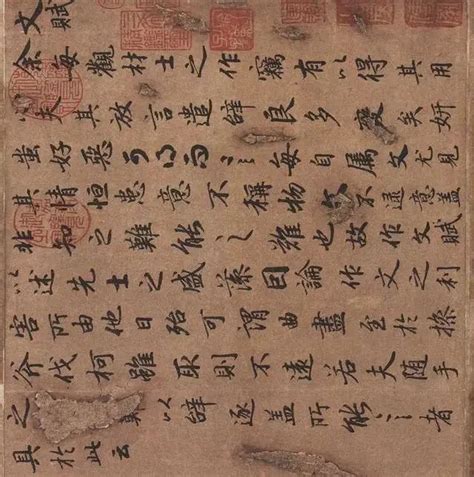 文賦
余每觀材士之作竊有以得其用
心夫其放言遣辭良多變矣妍
蚩好惡可得而言每自属文尤見
其情恒患意不稱物文不逮意盖
非知之難能之難也故作文賦
以述先士之盛藻因論作文之利
害所由他日殆可謂曲盡至於操
斧伐柯雖取則不遠若夫隨手
之以辭逐盖所能言者
具於此云